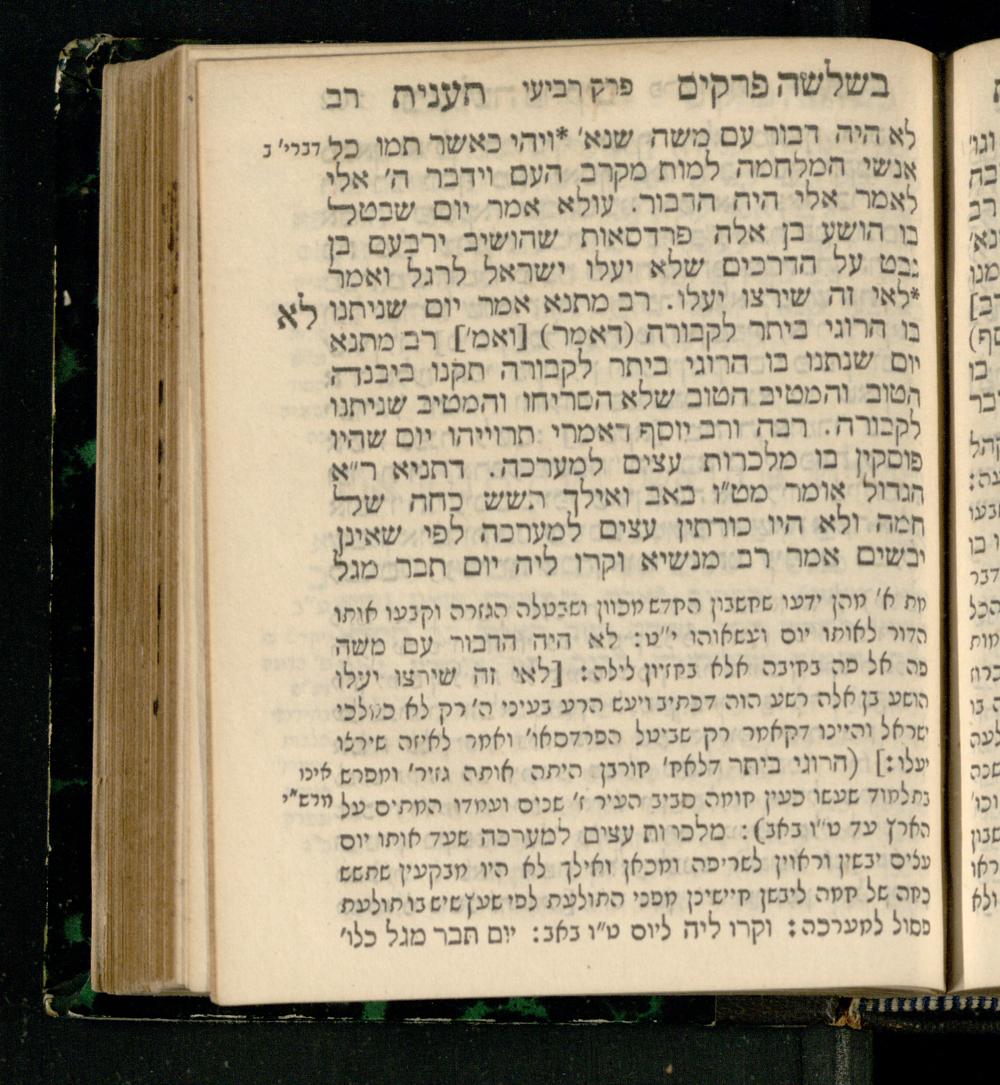 בשלשה פרקים פרק רביעי תענית רב
לא היה דבור עם משה שנא׳ *ויהי כאשר תמו כל דברי׳ ב
אנשי המלחמה למות מקרב העם וידבר ה׳ אלי
לאמר אלי היה הדבור. עולא אמר יום שבטל
בו הושע בן אלה פרדסאות שהושיב ירבעם בן
נבט על הדרכים שלא יעלו ישראל לרגל ואמר
*לאי זה שירצו יעלו. רב מתנא אמר יום שניתנו לא
בו הרוגי ביתר לקבורה (דאמר) [ואמ׳] רב מתנא
יום שנתנו בו הרוגי ביתר לקבורה תקנו ביבנה
הטוב והמטיב הטוב שלא הסריחו והמטיב שניתנו
לקבורה. רבה ורב יוסף דאמרי תרוייהו יום שהיו
פוסקין בו מלכרות עצים למערכה. דתניא ר״א
הגדול אומר מט״ו באב ואילך תשש כחה של
חמה ולא היו כורתין עצים למערכה לפי שאינן
יבשים אמר רב מנשיא וקרו ליה יום תבר מגל
מת א׳ מהן ידעו שחשבון החדש מכוון ושבטלה הגזרה וקבעו אותו
הדור לאותו יום ועשאוהו י״ט: לא היה הדבור עם משה
פה אל פה בחיבה אלא בחזיון לילה: [לאי זה שירצו יעלו
הושע בן אלה רשע הוה דכתיב ויעש הרע בעיני ה׳ רק לא כמלכי
ישראל והיינו דקאמר רק שביטל הפרדסאו׳ ואמר לאיזה שירצו
יעלו:] (הרוגי ביתר דלאח׳ חורבן היתה אותה גזיר׳ ומפרש אינו
בתלמוד שעשו כעין חומה סביב העיר ז׳ שנים ועמדו המתים על מרש״י
הארץ עד ט״ו באב): מלכרות עצים למערכה שעד אותו יום
עצים יבשין וראוין לשריפה ומכאן ואילך לא היו מבקעין שתשש
כחה של חמה ליבשן חיישינן מפני התולעת לפי שעץ שיש בו תולעת
פסול למערכה: וקרו ליה ליום ט״ו באב: יום תבר מגל כלו׳